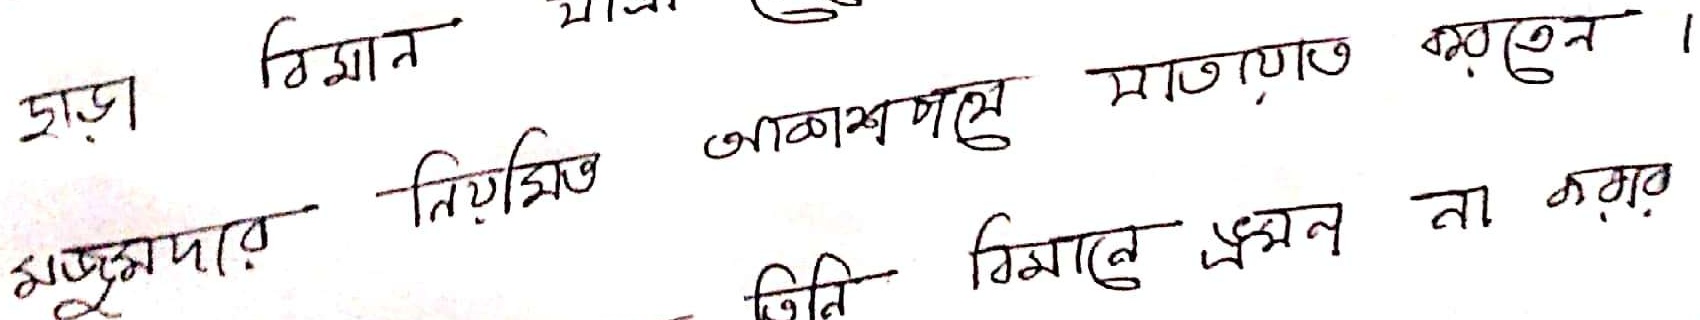 ছাড়া বিমান
মজুমদার নিয়মিত আকাশপথে যাতায়াত করতেন ।
তিনি বিমানে ভ্রমন না করার